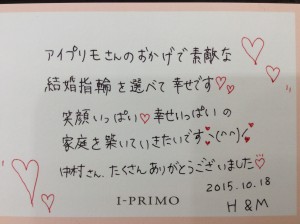 アイプリモさんのおかげで素敵な
結婚指輪を選べて幸せです♡♡
笑顔いっぱい♡幸せいっぱいの
家庭を築いていきたいですヽ(^^)ノ
中村さん、たくさんありがとうございました♡
I-PRIMO
2015.10.18
H & M